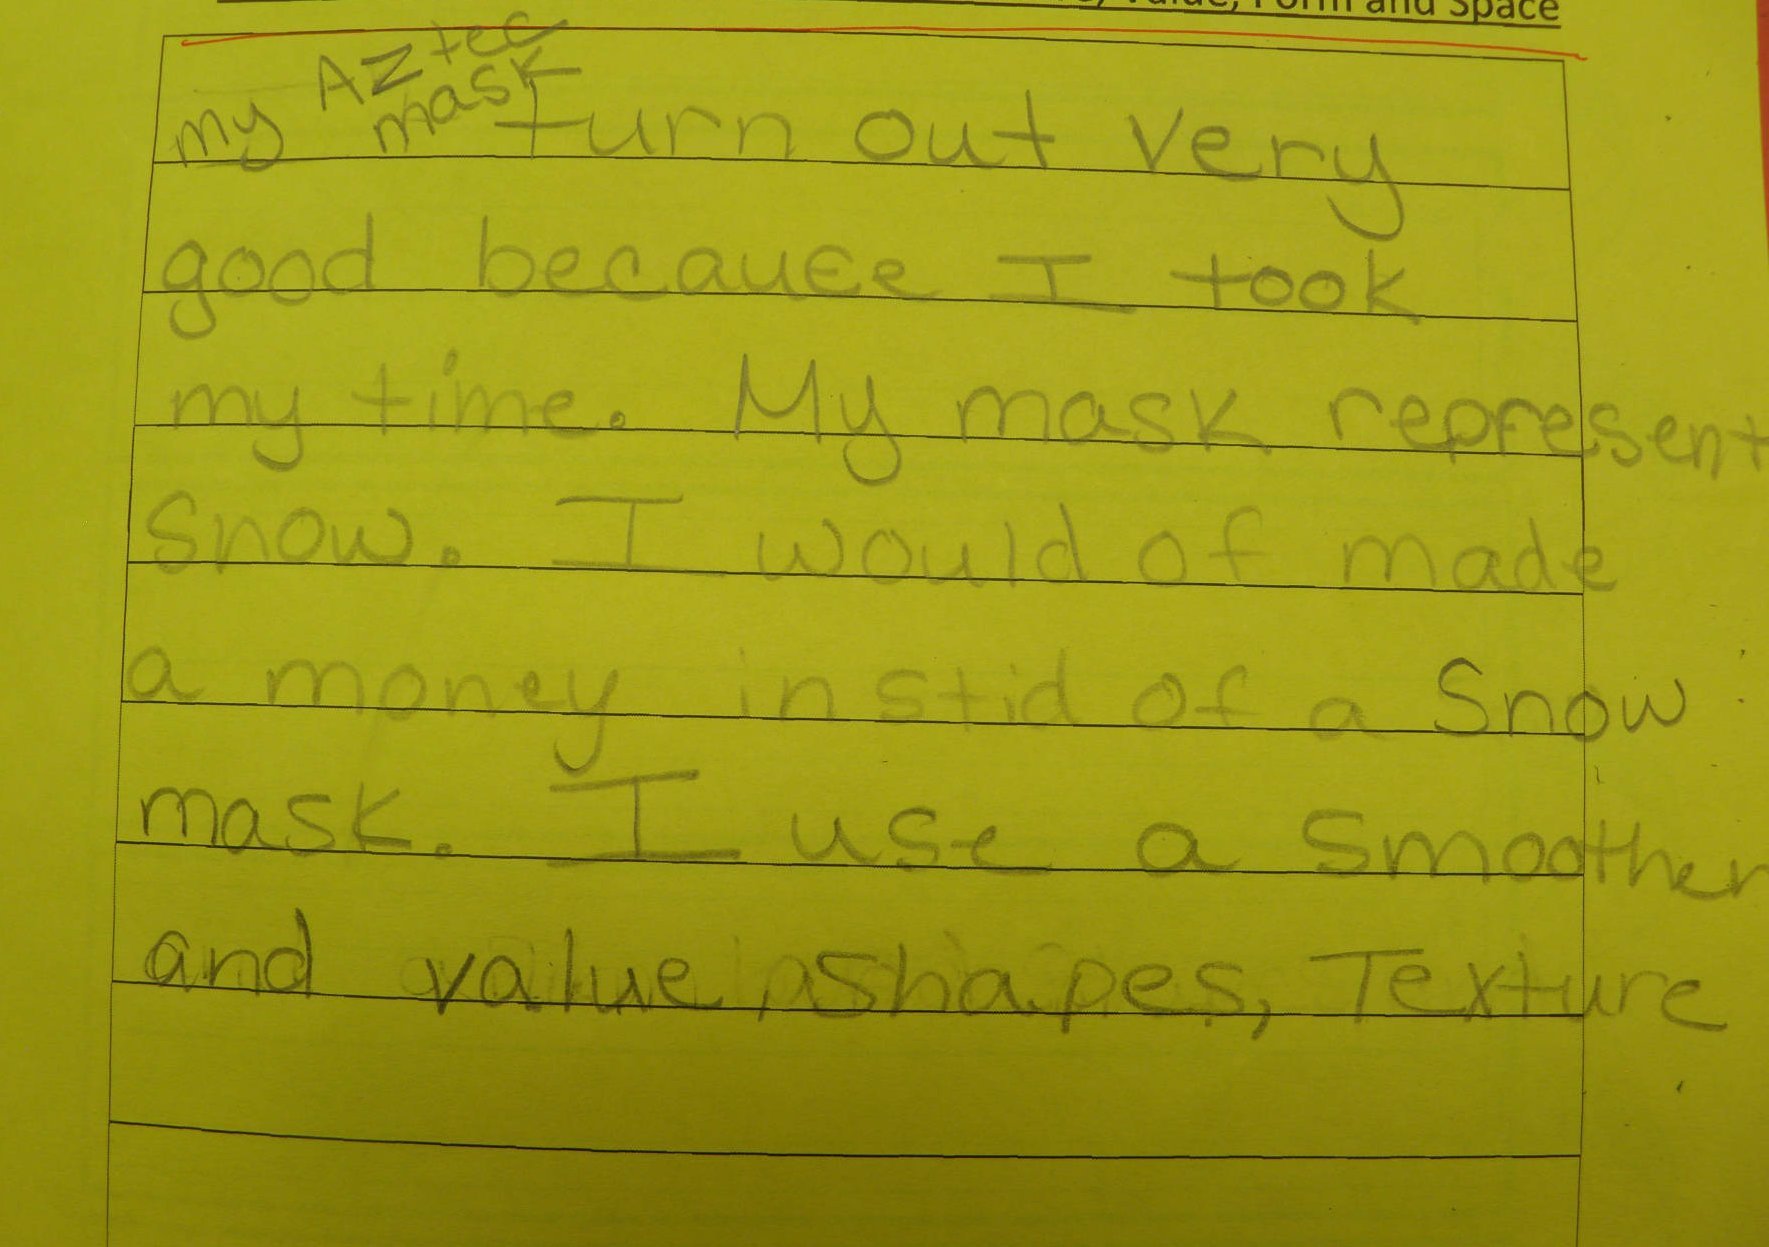 Value, Form and Space
my Aztec mask turn out very
good becauce I took
my time. My mask represent
snow. I would of made
a money instid of a Snow
mask. I use a smoother
and value, shapes, Texture